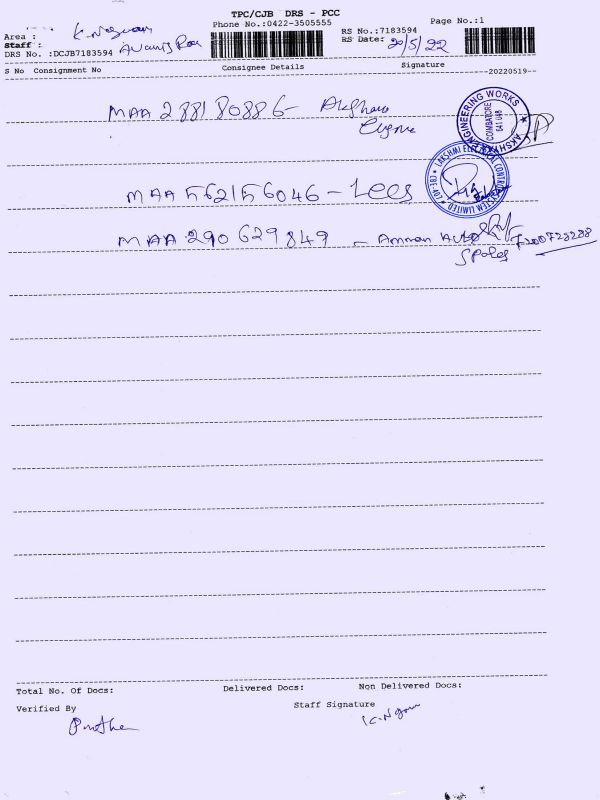 TPC/CJB DRS - PCC
Page No.:1
Phone No.:0422-3505555
Area :
RS No.:7183594
Staff :
RS Date: 20/5/22
DRS No. :DCJB7183594
S No Consignment No Consignee Details Signature
--20220519--
MAA 288180886-
ENGINEERING WORKS
COIMBATORE
MAA 562156046 - Lecs
LAKSHMI ELECTRICAL CONTROL SYSTEM LIMITED
MAA 290629849 - Amman Auto
Total No. Of Docs: Delivered Docs: Non Delivered Docs:
Verified By Staff Signature